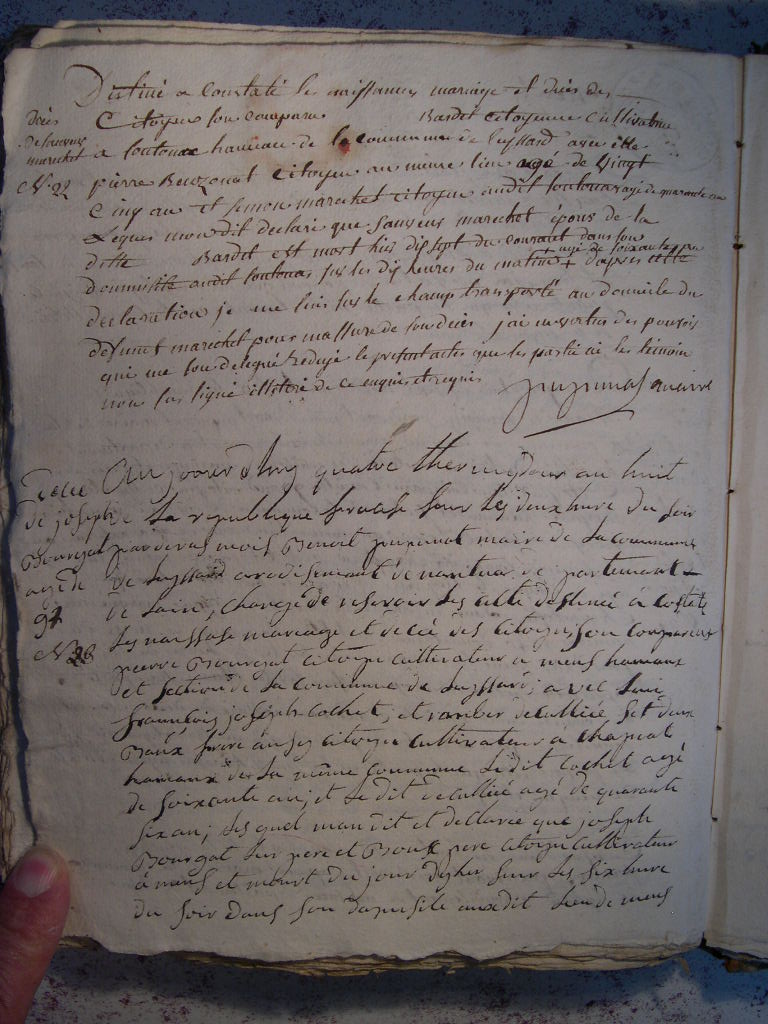 Destiné a Constaté les naissances mariage et déces des
Citoyen son comparu Bardet citoyenne Cultivatrice
déces de sauveur marechet N. 22
a loutouar hameau de la commune de Leyssard avec elle
pierre Bouzonat Citoyen au meme lieu agé de Vingt
Cinq an et simon marechet citoyen audit loutouar agé de quarante an
Lequés mon dit declaré que sauveur marechet épous de la
ditte Bardet est mort hier dix sept du courant dans son
agé de soixante
Dommisile audit loutouar sur les dix heures du matin + dapres cette
declaration je me suis sur le champ transporté au domicile du
defunct marechet pour massure de son déces j'ai en vertus des pouvoir
qui me son delegué redigé le present actes que les partie ni les temoin
non sus signé illiteré de ce enquis et requis
maire
decé de joseph Bourgat agé de 97 N. 23
Aujourdhuy quatre thermidour an huit
de La republique francase sur Les deux hure du soir
par devans mois Benoit maire de La commune
de Leyssard arodisemant de nantua departemant
de Lain, chargé de resevoir Les acte destiné à costaté
Les naissase mareage et décée des citoyen, son comparut
pierre Bourgat citoyen cultivateur a mens hameaux
et section de La commune de Leyssard, avec Luis
francois joseph Cochet, et de cullieé set deux
citoyen cultivateur à chapiat
hameaux de La même commune Ledit Cochet agé
de soixante an, et Le dit de cullieé agé de quarante
six an, Les quel man dit et declarée que joseph
Bourgat Leur pere et Boux pere citoyen cultivateur
à mens et mourt du jour dyher sur Les six hure
du soir dans son domisile auxdit Lieu de mens